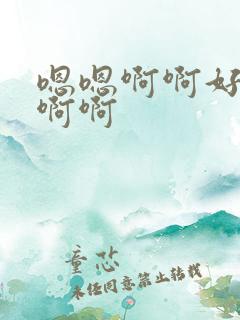 嗯嗯啊啊好
啊啊
童芯
未经同意禁止转载